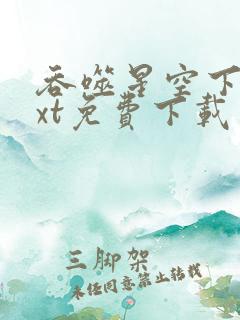 吞噬星空下
xt免费下载
三脚架
未经同意禁止转载